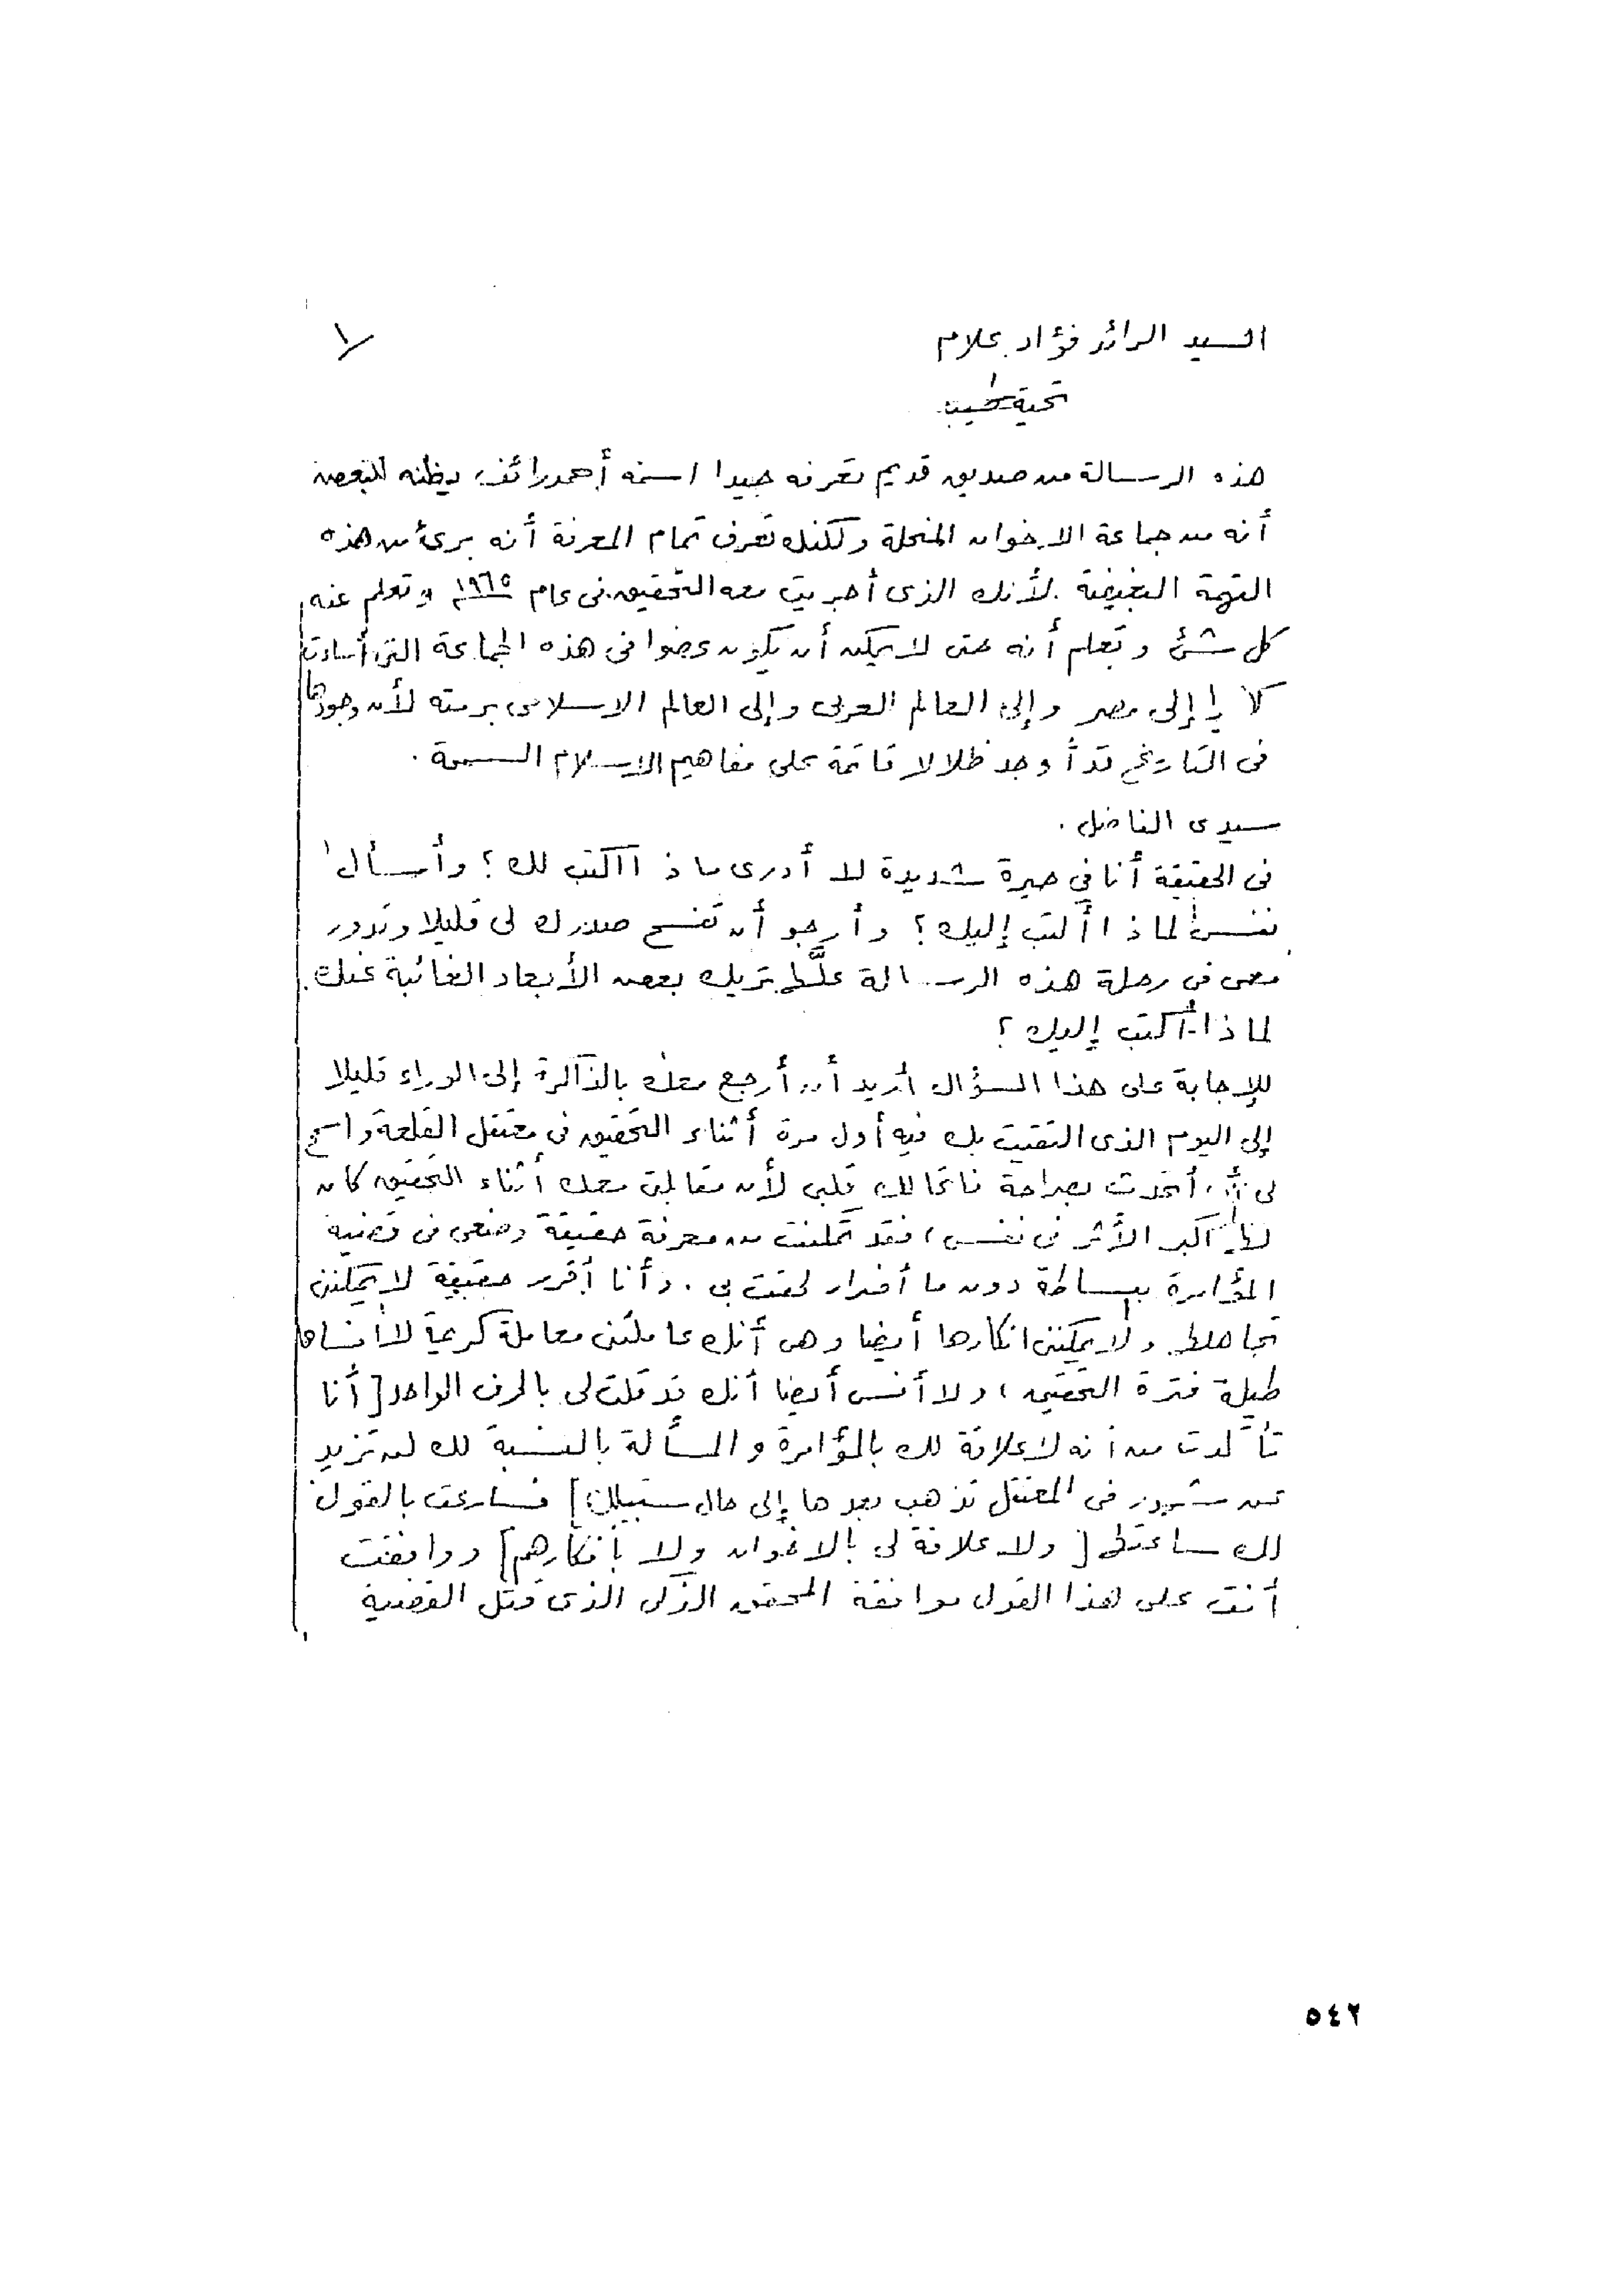 السيد الرائد فؤاد علام
١/
تحية طيبة
هذه الرسالة من صديق قديم تعرفه جيدا اسمه أحمد رائف يظنه البعض
أنه من جماعة الاخوان المنحلة ولكنك تعرف تمام المعرفة أنه برئ من هذه
التهمة البغيضة لأنك الذى أجريت معه التحقيق فى عام ١٩٦٥ وتعلم عنه
كل شئ وتعلم أنه حتى لا يمكن أن يكون عضوا فى هذه الجماعة التى أساءت
كثيرا إلى مصر وإلى العالم العربى وإلى العالم الاسلامى برمته لأن وجودها
فى التاريخ قد أوجد ظلالا قاتمة على مفاهيم الاسلام السمحة .
سيدى الفاضل .
فى الحقيقة أنا في حيرة شديدة لا أدرى ماذا أكتب لك ؟ وأسأل
نفسى لماذا أكتب إليك ؟ وأرجو أن تفسح صدرك لى قليلا وتدور
معى فى رحلة هذه الرسالة علَّها تريك بعض الأبعاد الغائبة عنك .
لماذا أكتب إليك ؟
للإجابة على هذا السؤال أريد أن أرجع معك بالذاكرة إلى الوراء قليلا
إلى اليوم الذى التقيت بك فيه أول مرة أثناء التحقيق فى معتقل القلعة واسمح
لى أن أتحدث بصراحة فاتحا لك قلبى لأن مقابلتى معك أثناء التحقيق كان
لها أكبر الأثر فى نفسى ، فقد تمكنت من معرفة حقيقة وضعى فى قضية
المؤامرة ببساطة دون ما أضرار لحقت بى . وأنا أقرر حقيقة لا يمكننى
تجاهلها ولا يمكننى انكارها أيضا وهى أنك عاملتنى معاملة كريمة لا أنساها
طيلة فترة التحقيق ، ولا أنسى أيضا أنك قد قلت لى بالحرف الواحد [ أنا
تأكدت من أنه لا علاقة لك بالمؤامرة والمسألة بالنسبة لك لن تزيد
عن شهور فى المعتقل تذهب بعدها إلى حال سبيلك ] فسارعت بالقول
لك ساعتها [ ولا علاقة لى بالاخوان ولا بأفكارهم ] ووافقت
أنت على هذا القول موافقة المحقق الذكى الذى قتل القضية
٥٤٢